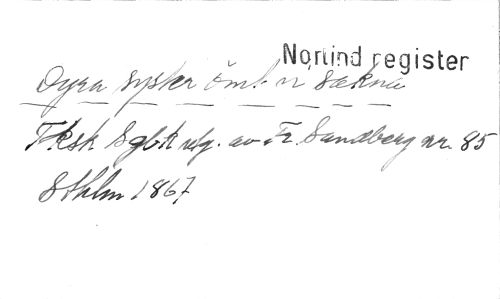 Norlind register
Dyra syster ömt vi sakna
Fksk Sgbk utg. av Fr. Sandberg nr. 85
Sthlm 1867